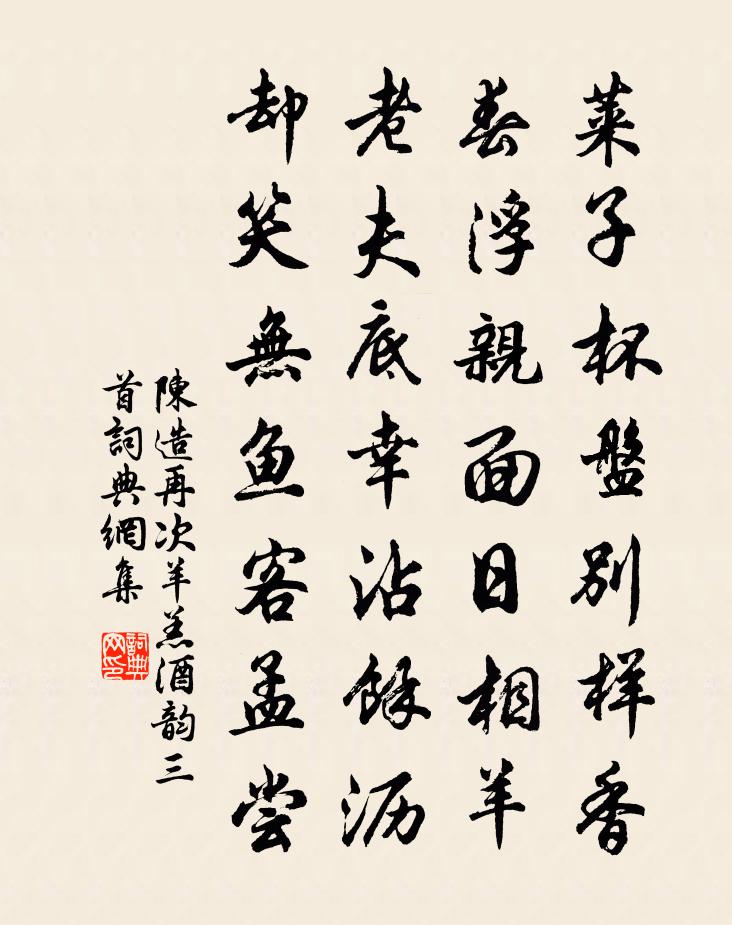 菜子杯盤別樣香
春浮親面日相羊
老夫底幸沾餘沥
却笑無鱼客孟尝
陳造再次羊羔酒韵三
首詞典網集
詞典網印